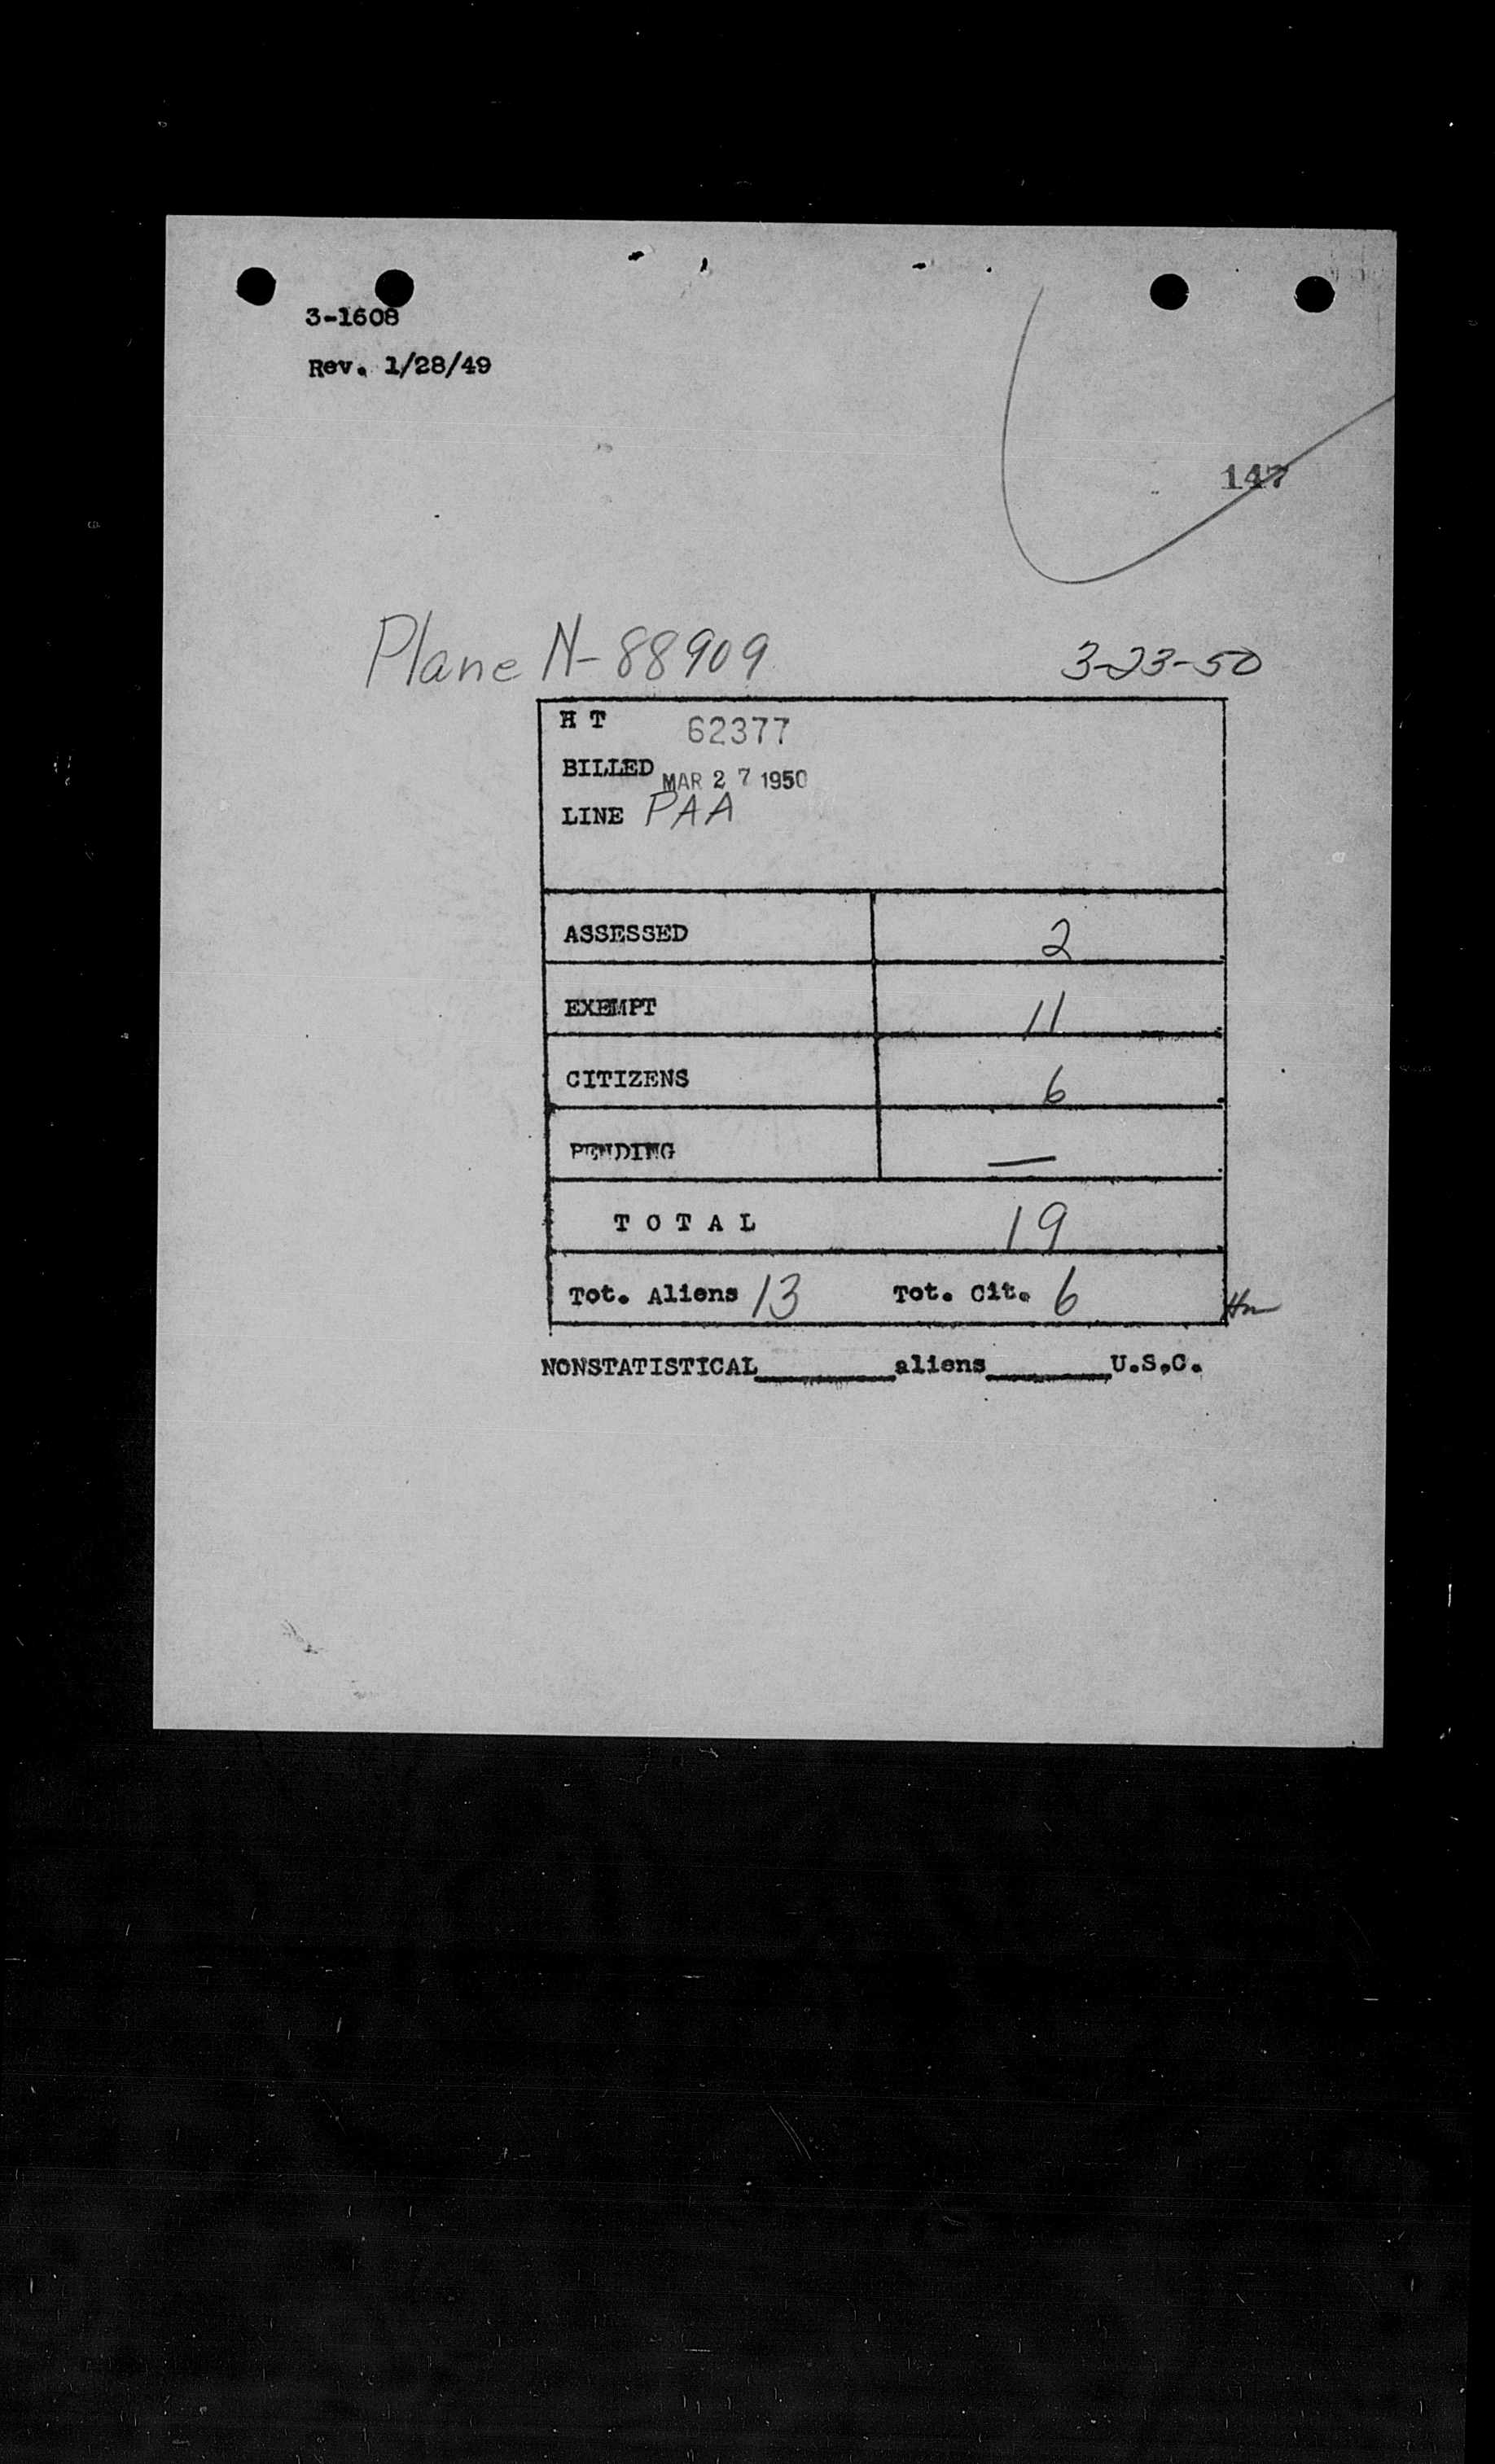 3-1608
Rev. 1/28/49
147
Plane N-88909 3-23-50
H T 62377
BILLED MAR 27 1950
LINE PAA
ASSESSED 2
EXEMPT 11
CITIZENS 6
PENDING —
T O T A L 19
Tot. Aliens 13 Tot. Cit. 6
NONSTATISTICAL________aliens________U.S.C.